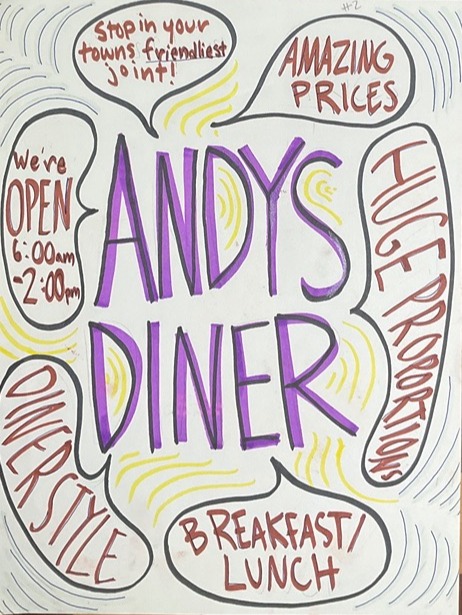 #2
Stop in your
towns friendliest
joint!
AMAZING
PRICES
We're
OPEN
6:00am
-2:00pm
ANDYS
DINER
HUGE PROPORTIONS
DINER STYLE
BREAKFAST/
LUNCH